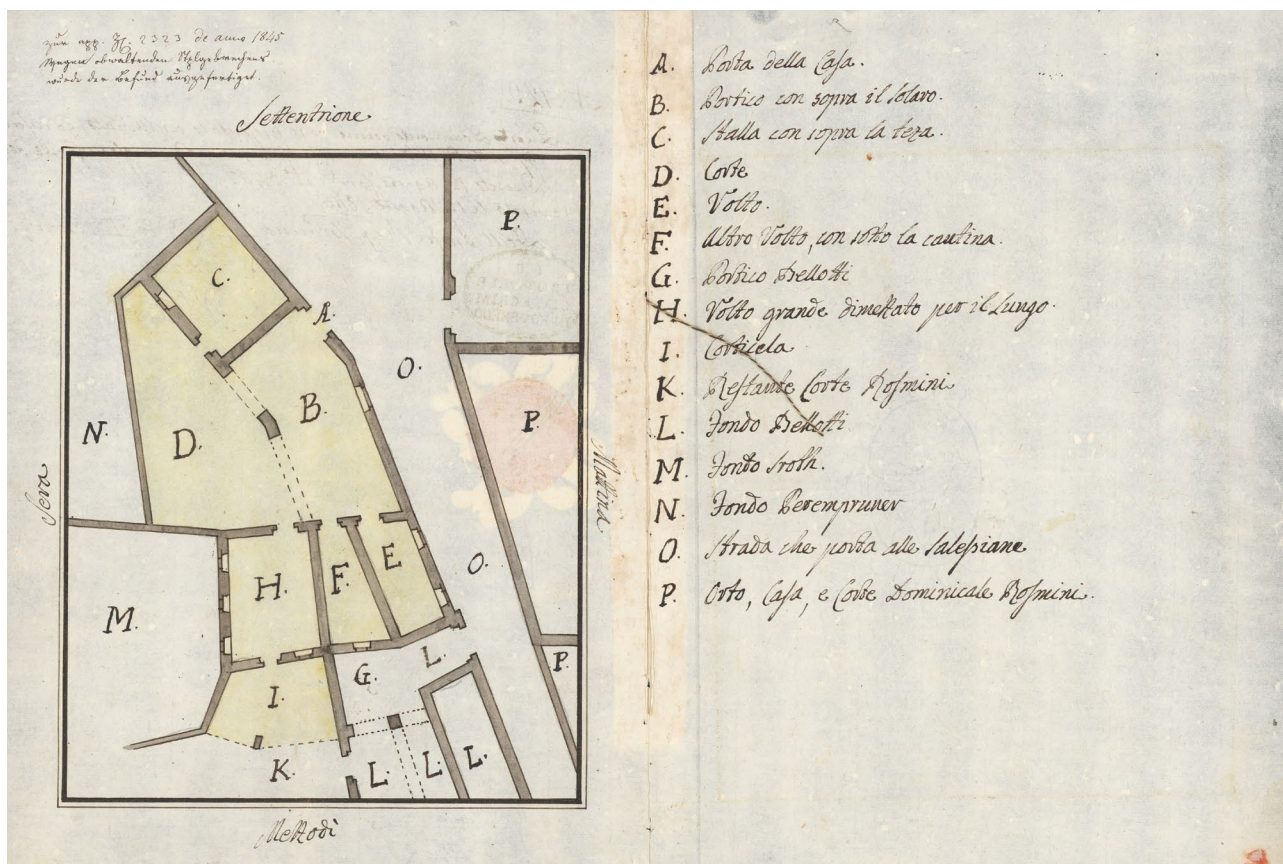 zur app. Zl. 2323 de anno 1845
Wegen obwaltenden Stplgebrechens
wurde der Befund ausgefertiget.
Settentrione
P.
C.
A.
O.
B.
P.
N.
D.
Sera
Mattina
E
F.
H.
O.
M.
L.
P.
G.
I.
K.
L.
L.
L.
Mettodì
A. Porta della Casa.
B. Portico con sopra il solaro.
C. Stalla con sopra la teza.
D. Corte
E. Volto.
F. Altro Volto, con sotto la cantina.
G. Portico Bellotti
H. Volto grande dimettato per il Lungo.
I. Corticela
K. Restante Corte Rosmini
L. Fondo Bellotti
M. Fondo Sroth.
N. Fondo Perempruner
O. Strada che porta alle Salesiane
P. Orto, Casa, e Corte Dominicale Rosmini.